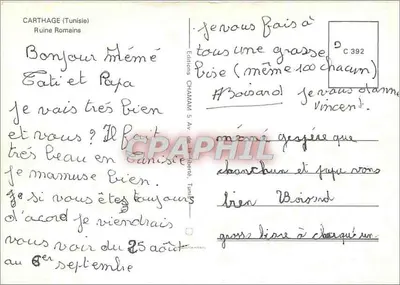 CARTHAGE (Tunisie)
Ruine Romaine
Bonjour Mémé
Tati et Papa
Je vais très bien
et vous? Il fait
très beau en Tunisie
je mamuse bien.
Je si vous êtes toujours
d'acord je viendrais
vous voir du 25 août
au 6er septembre
Editions CHAMAM 5 Av
CPAPHIL
Je vous fais à
tous une grasse
bise (même 100 chacun)
#Boisard je vous donne
vincent.
D C 392
mémé gespère que
et papi vons
bien Boisard
gross bisse à